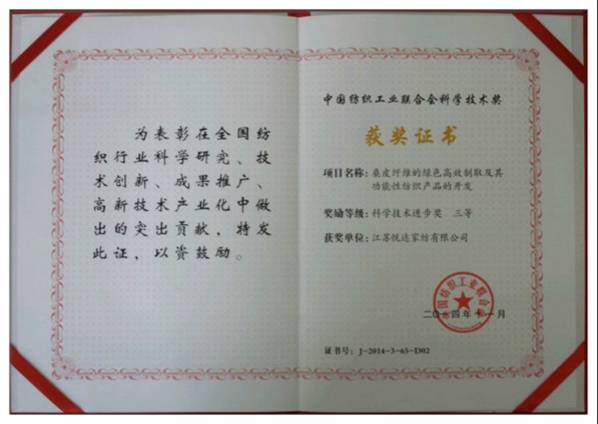 为表彰在全国纺
织行业科学研究、技
术创新、成果推广、
高新技术产业化中做
出的突出贡献，特发
此证，以资鼓励。
中国纺织工业联合会科学技术奖
获奖证书
项目名称：桑皮纤维的绿色高效制取及其
功能性纺织产品的开发
奖励等级：科学技术进步奖 三等
获奖单位：江苏悦达家纺有限公司
中国纺织工业联合会
二〇一四年十一月
证书号：J-2014-3-65-D02